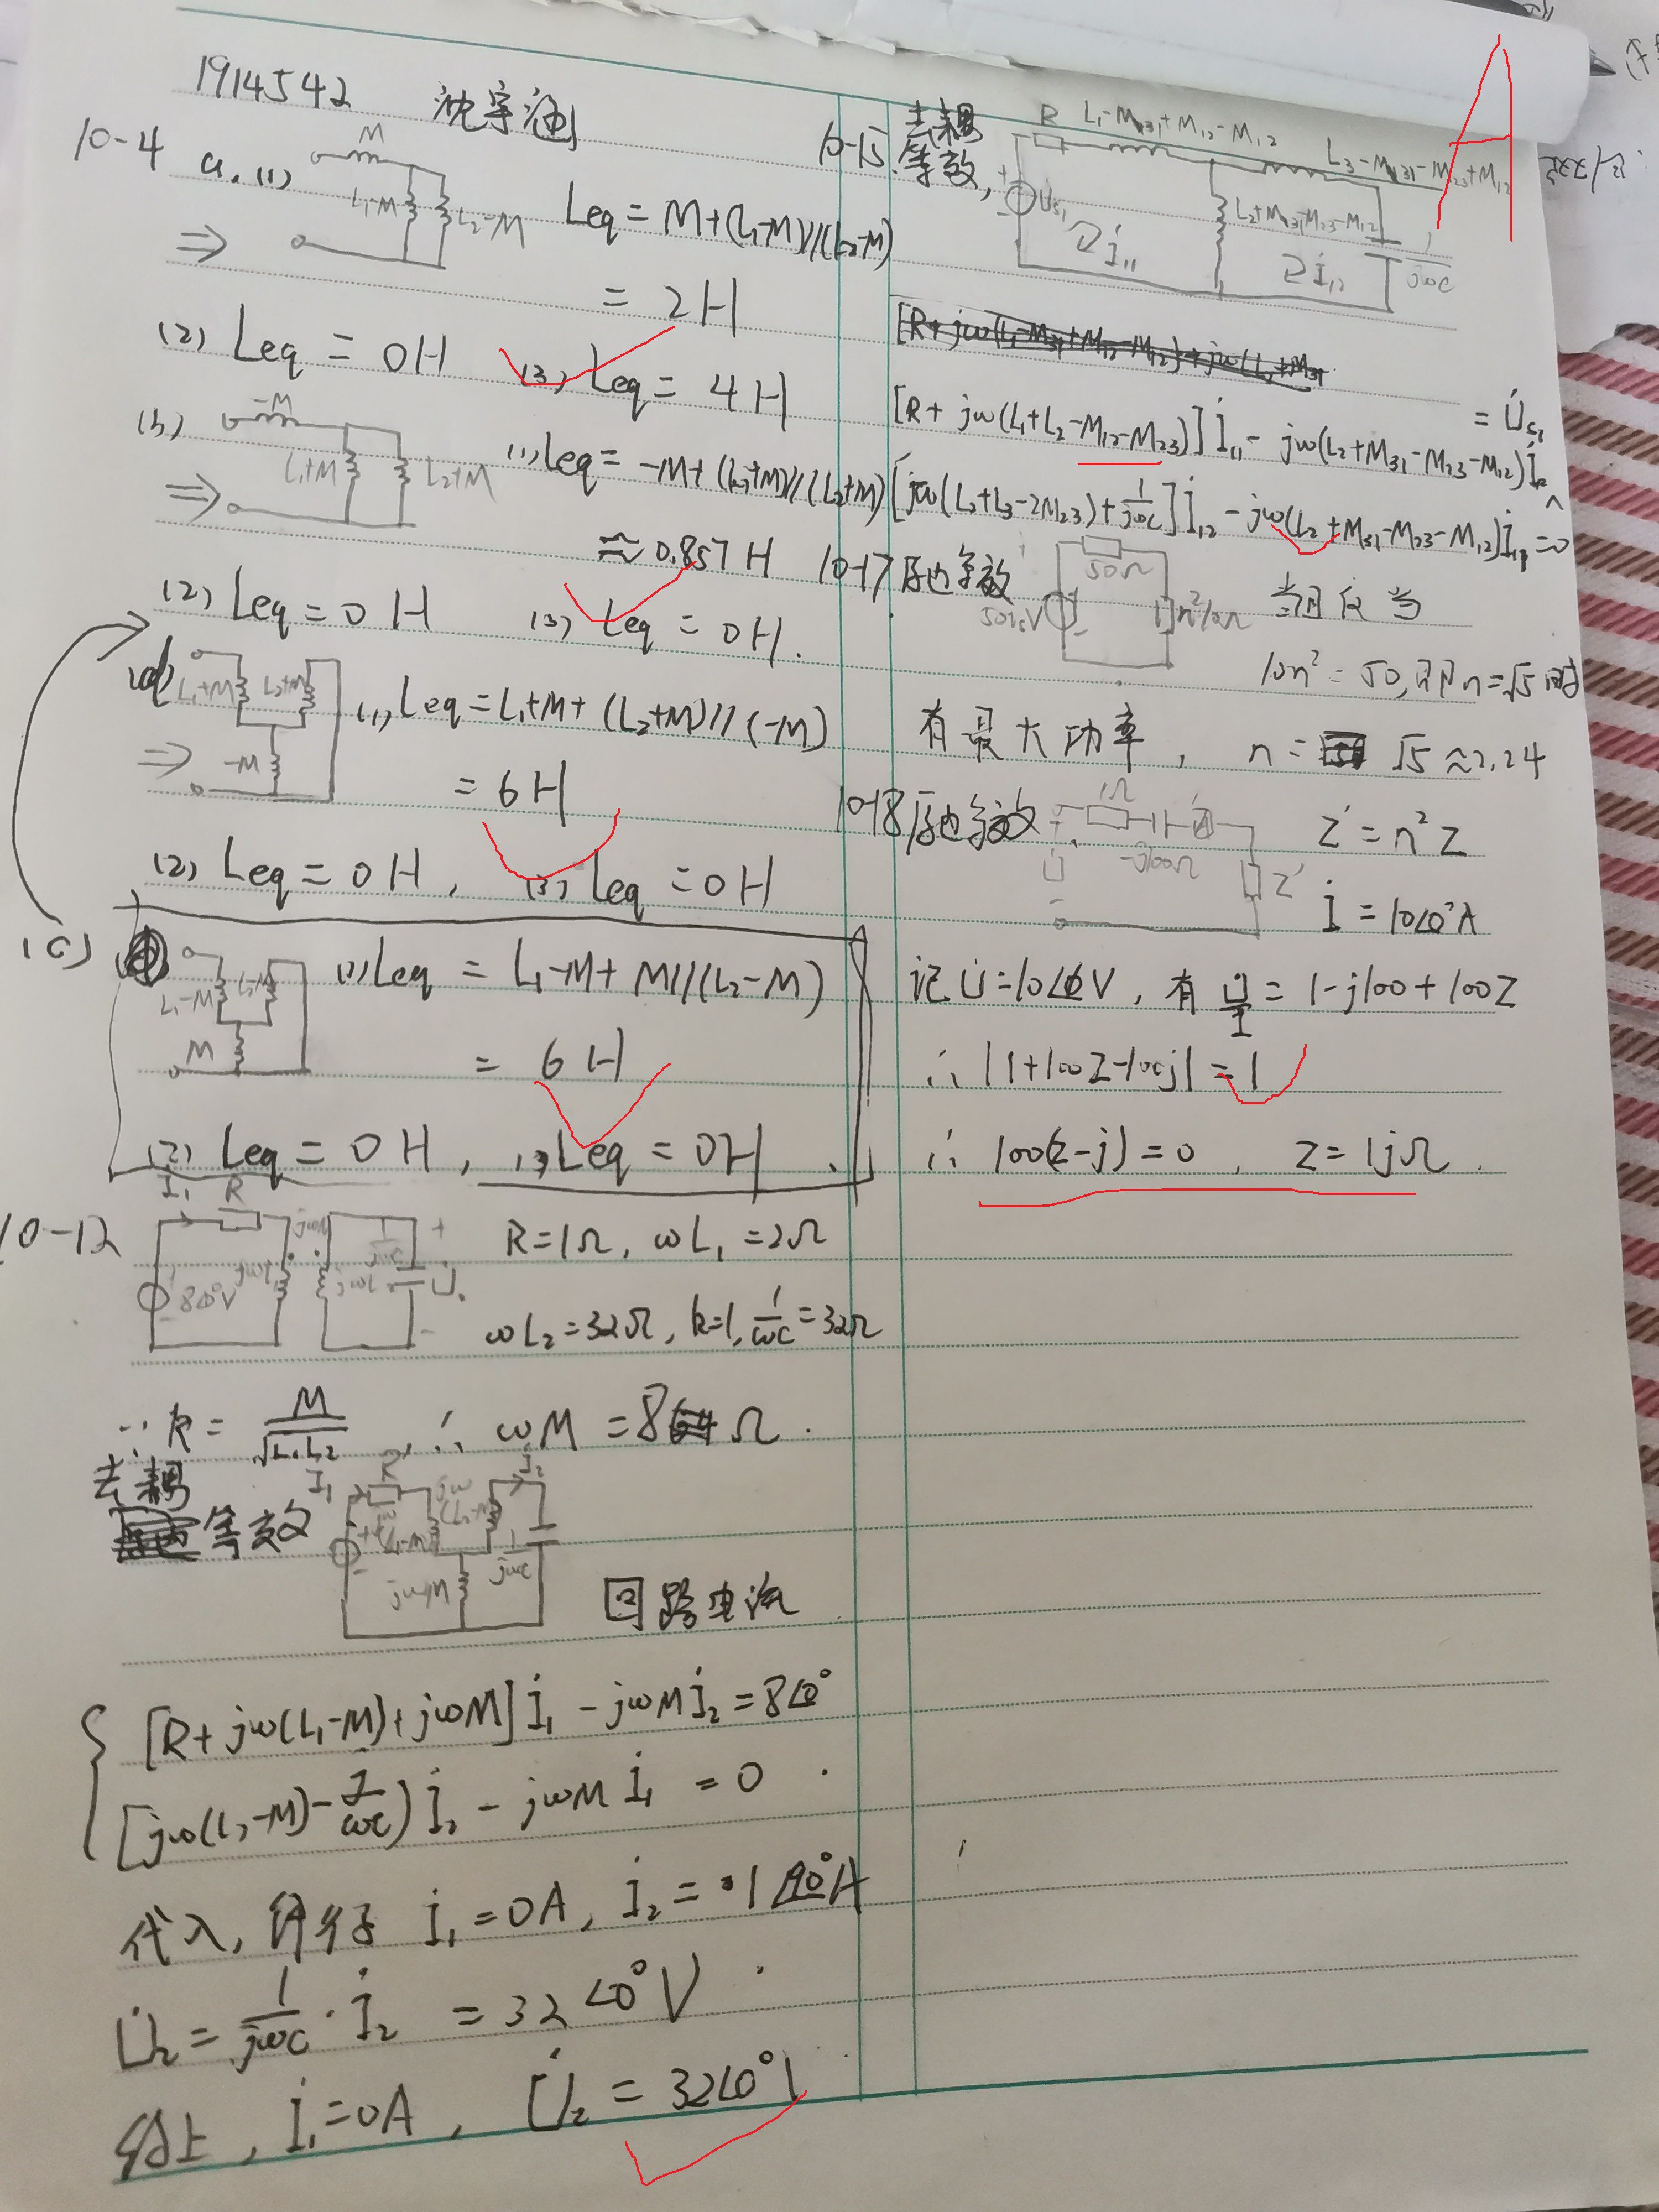 1914542 沈宇涵
10-4 a. (1)
M
L₁-M
L₂-M
Leq = M+(L₁-M)//(L₂-M)
= 2H
(2) Leq = 0H (3) Leq = 4H
(b)
-M
L₁+M
L₂+M
(1) Leq = -M+(L₁+M)//(L₂+M)
≈ 0.857H
(2) Leq = 0H (3) Leq = 0H.
(d)
L₁+M
L₂+M
-M
(1) Leq = L₁+M+(L₂+M)//(-M)
= 6H
(2) Leq = 0H, (3) Leq = 0H
(c)
L₁-M
L₂-M
M
(1) Leq = L₁-M+M//(L₂-M)
= 6H
(2) Leq = 0H, (3) Leq = 0H.
10-12
İ₁ R
jωM
jωL₁
jωL₂
1/jωC
8∠0°V
+
-
R=1Ω, ωL₁=2Ω
ωL₂=32Ω, k=1, 1/ωC=32Ω
∵ k = M/√L₁L₂, ∴ ωM = 8Ω.
去耦
等效
İ₁ R İ₂
jω(L₁-M)
jω(L₂-M)
jωM
1/jωC
回路电流
[R+jω(L₁-M)+jωM]İ₁ - jωMİ₂ = 8∠0°
[jω(L₂-M) - j/ωC)İ₂ - jωMİ₁ = 0.
代入,解得 İ₁=0A, İ₂ = 1∠90°A
U̇₂ = 1/jωC · İ₂ = 32∠0°V.
综上, İ₁=0A, U̇₂ = 32∠0°V
A
10-15 去耦
等效,
R L₁-M₃₁+M₁₂-M₁₂
L₃-M₃₁-M₂₃+M₁₂
L₂+M₃₁-M₂₃-M₁₂
U̇s₁
İ₁₁
İ₁₂
1/jωC
[R+jω(L₁+L₂-M₁₂-M₂₃)]İ₁₁ - jω(L₂+M₃₁-M₂₃-M₁₂)İ₁₂ = U̇s₁
[jω(L₂+L₃-2M₂₃)+1/jωC]İ₁₂ - jω(L₂+M₃₁-M₂₃-M₁₂)İ₁₁=0
10-17 原边等效
50Ω
50∠0°V
n²10Ω
当且仅当
10n² = 50, 即n=√5时
有最大功率, n = √5 ≈2.24
10-18 原边等效.
1Ω
-j100Ω
A
U̇
Z'
Z' = n²Z
İ = 10∠0°A
记U̇=10∠ϕV, 有 U̇/İ = 1-j100+100Z
∴ |1+100Z-100j| = 1
∴ 100(Z-j)=0, Z=1jΩ.